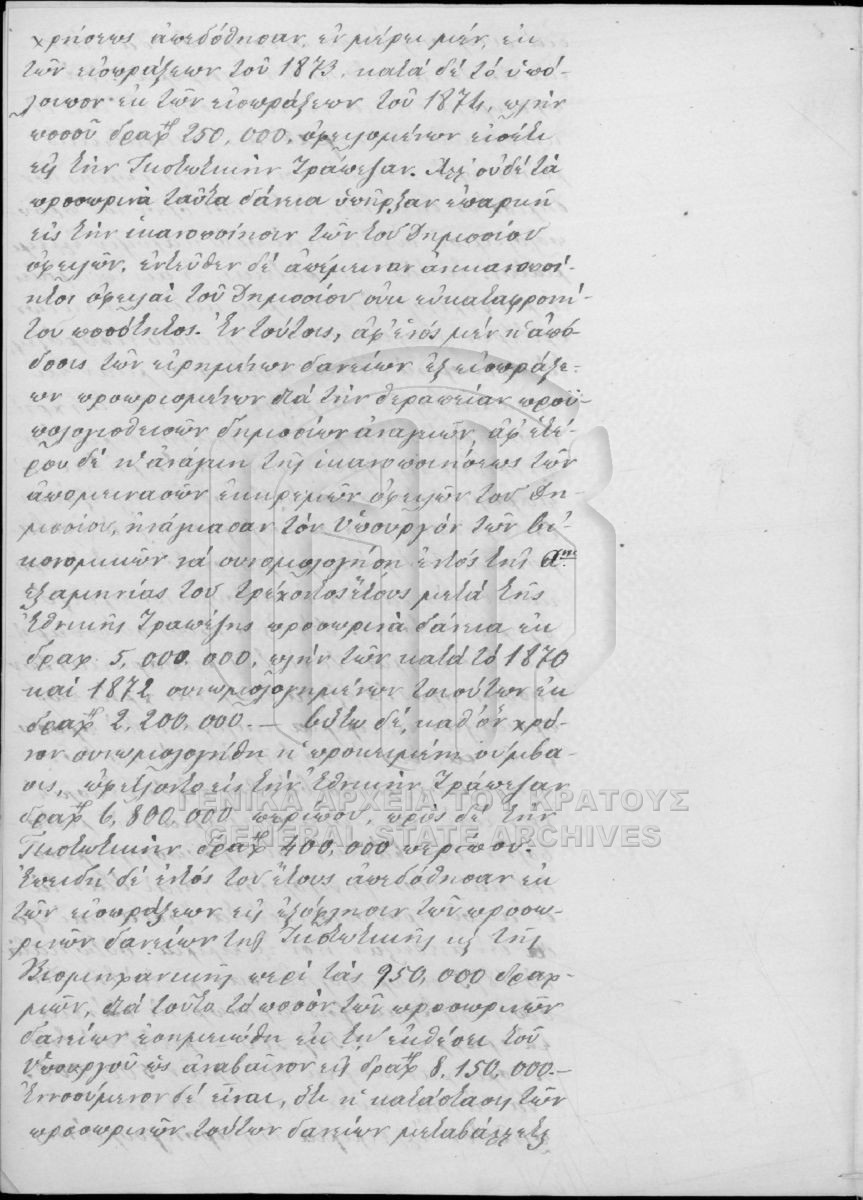 χρήσεως ἀπεδόθησαν, ἐν μέρει μέν, ἐκ
τῶν εἰσπράξεων τοῦ 1873, κατά δέ τό ὑπό-
λοιπον ἐκ τῶν εἰσπράξεων τοῦ 1874, πλήν
ποσοῦ δραχ. 250,000, ὀφειλομένων εἰσέτι
εἰς τήν Πιστωτικήν Τράπεζαν. Ἀλλ' οὐδέ τά
προσωρινά ταῦτα δάνεια ὑπῆρξαν ἐπαρκῆ
εἰς τήν ἱκανοποίησιν τῶν τοῦ Δημοσίου
ὀφειλῶν, ἐντεῦθεν δέ ἀπέμειναν ἀνικανοποί-
ητοι ὀφειλαί τοῦ Δημοσίου οὐκ εὐκαταφρονή-
του ποσότητος. Ἐν τούτοις, ἀφ' ἑνός μέν ἡ ἀπό-
δοσις τῶν εἰρημένων δανείων ἐξ εἰσπράξε-
ων προωρισμένων διά τήν θεραπείαν προϋ-
πολογισθεισῶν δημοσίων ἀναγκῶν, ἀφ' ἑτέ-
ρου δέ ἡ ἀνάγκη τῆς ἱκανοποιήσεως τῶν
ἀπομεινασῶν ἐκκρεμῶν ὀφειλῶν τοῦ Δη-
μοσίου, ἠνάγκασαν τόν Ὑπουργόν τῶν Οἰ-
κονομικῶν νά συνομολογήσῃ ἐντός τῆς αης
ἑξαμηνίας τοῦ τρέχοντος ἔτους μετά τῆς
Ἐθνικῆς Τραπέζης προσωρινά δάνεια ἐκ
δραχ. 5,000,000, πλήν τῶν κατά τό 1870
καί 1872 συνωμολογημένων τοιούτων ἐκ
δραχ. 2,200,000. — Οὕτω δέ, καθ' ὅν χρό-
νον συνωμολογήθη ἡ προκειμένη σύμβα-
σις, ὠφείλοντο εἰς τήν Ἐθνικήν Τράπεζαν
δραχ. 6,800,000 περίπου, πρός δέ τήν
Πιστωτικήν δραχ. 400,000 περίπου.
Ἐπειδή δέ ἐντός τοῦ ἔτους ἀπεδόθησαν ἐκ
τῶν εἰσπράξεων εἰς ἐξόφλησιν τῶν προσω-
ρινῶν δανείων τῆς Πιστωτικῆς κ τῆς
Βιομηχανικῆς περί τάς 950,000 δραχ-
μῶν, διά τοῦτο τό ποσόν τῶν προσωρινῶν
δανείων ἐσημειώθη ἐν τῇ ἐκθέσει τοῦ
Ὑπουργοῦ ὡς ἀναβαῖνον εἰς δραχ. 8,150,000.—
Ἐννοούμενον δέ εἶναι, ὅτι ἡ κατάστασις τῶν
προσωρινῶν τούτων δανείων μεταβάλλεται
ΓΕΝΙΚΑ ΑΡΧΕΙΑ ΤΟΥ ΚΡΑΤΟΥΣ
GENERAL STATE ARCHIVES